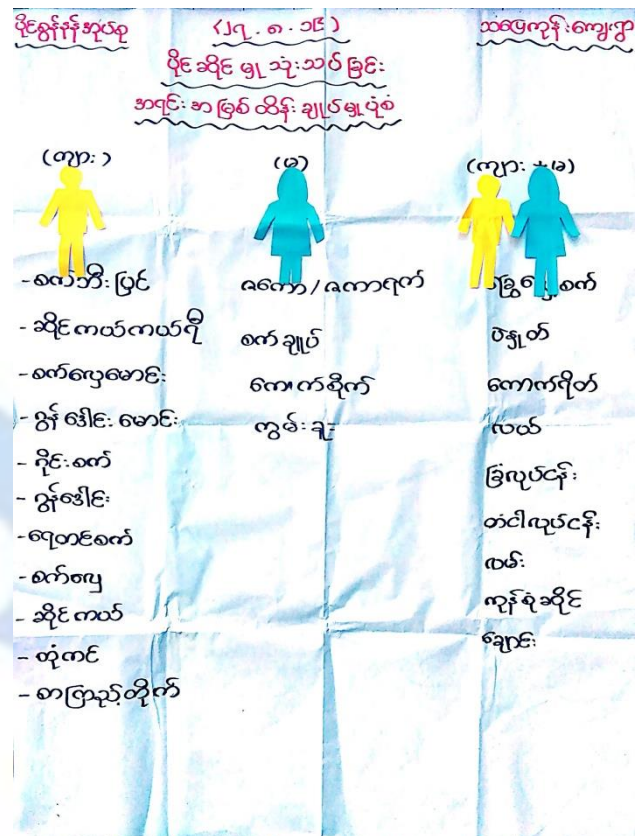 ပိုင်ရွန်နန်အုပ်စု
(၂၇.၈.၁၉)
သပြေကုန်းကျေးရွာ
ပိုင်ဆိုင်မှုသုံးသပ်ခြင်း
အရင်းအမြစ်ထိန်းချုပ်မှုပုံစံ
(ကျား)
(မ)
(ကျား + မ)
- စက်ဘီးပြင်
- ဆိုင်ကယ်ကယ်ရီ
- စက်လှေမောင်း
- ဂွန်ဒေါင်းမောင်း
- ဂိုင်းစက်
- ဂွန်ဒေါင်း
- ရေတင်စက်
- စက်လှေ
- ဆိုင်ကယ်
- တုံကင်
- စာကြည့်တိုက်
ဇကော/ဇကာရက်
စက်ချုပ်
ကောက်စိုက်
ကွမ်းခူး
ခြွေလှေ့စက်
ပဲနှုတ်
ကောက်ရိတ်
လယ်
ခြံလုပ်ငန်း
တံငါလုပ်ငန်း
လမ်း
ကုန်စုံဆိုင်
ချောင်း